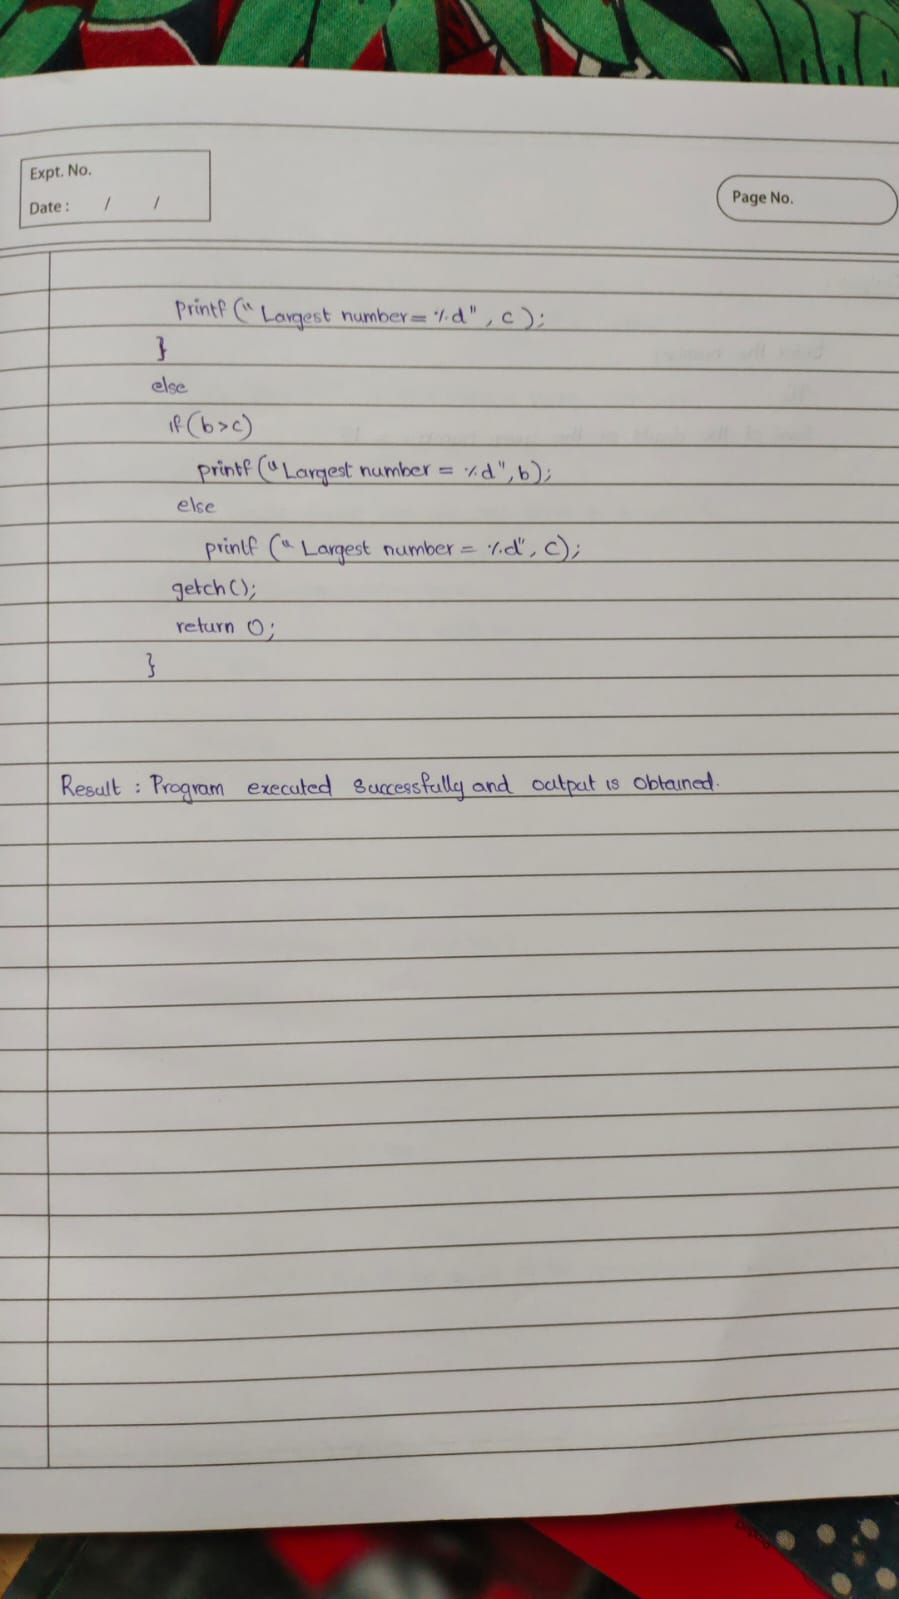 Expt. No.
Date : / /
Page No.
printf ("Largest number = %d", c);
}
else
if (b>c)
printf ("Largest number = %d", b);
else
printf ("Largest number = %d", c);
getch();
return 0;
}
Result : Program executed successfully and output is obtained.